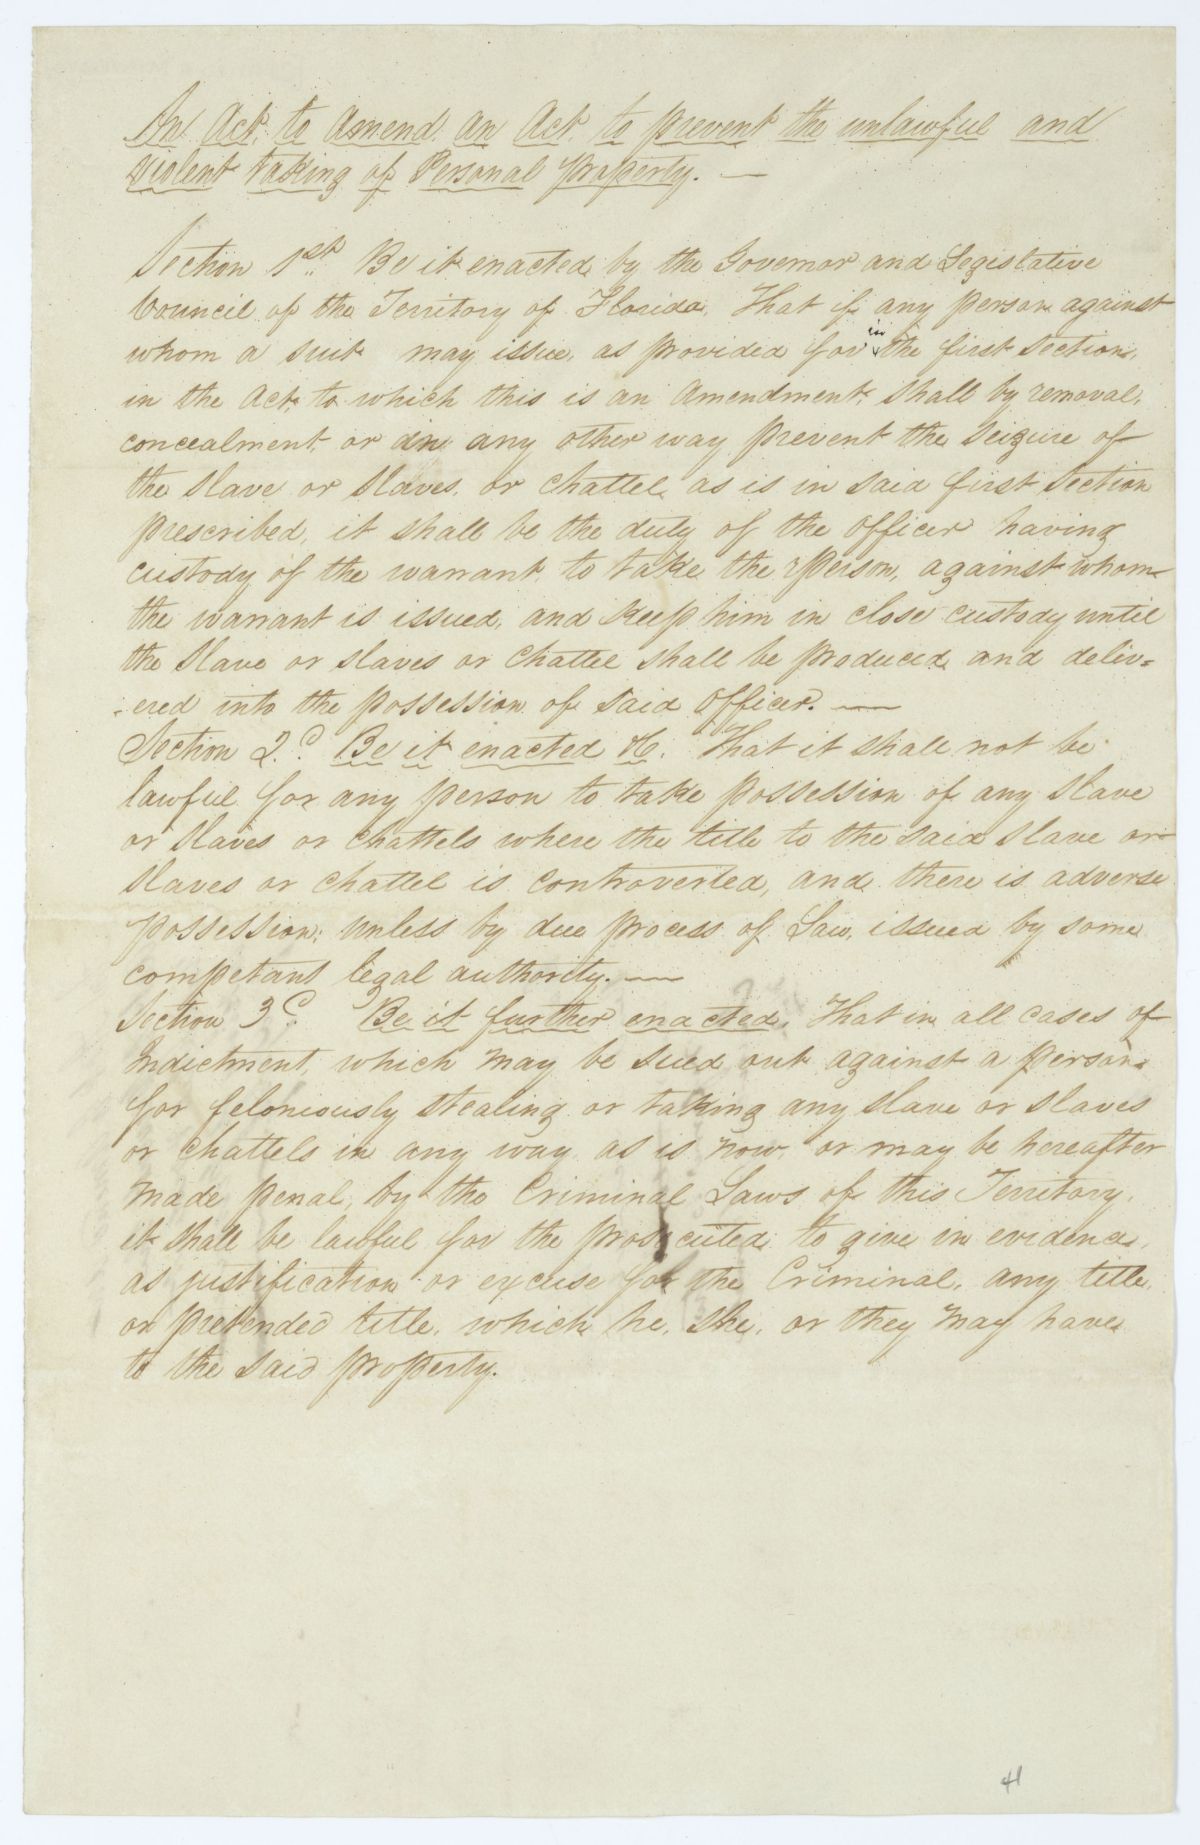 An Act to Amend An Act to prevent the unlawful and
Violent taking of Personal property. —
Section 1st. Be it enacted by the Governor and Legislative
Council of the Territory of Florida, That if any person against
whom a suit may issue, as provided for in the first section,
in the Act, to which this is an Amendment, shall by removal,
concealment, or in any other way prevent the seizure of
the slave or slaves, or chattel, as is in said first section
prescribed, it shall be the duty of the officer having
custody of the warrant, to take the Person, against whom
the warrant is issued, and keep him in close custody until
the slave or slaves or chattel shall be produced and deliv=
ered into the possession of said officer. —
Section 2d. Be it enacted &c. That it shall not be
lawful for any person to take possession of any slave
or slaves or chattels where the title to the said slave or
slaves or chattel is controverted, and there is adverse
possession; unless by due process of Law, issued by some
competant legal authority. —
Section 3d. Be it further enacted, That in all cases of
Indictment, which may be sued out against a person
for feloniously stealing or taking any slave or slaves
or chattels in any way as is now, or may be hereafter
made penal, by the Criminal Laws of this Territory,
it shall be lawful for the prosecuted to give in evidence,
as justification or excuse for the Criminal, any title,
or pretended title, which he, she, or they may have
to the said property.
41